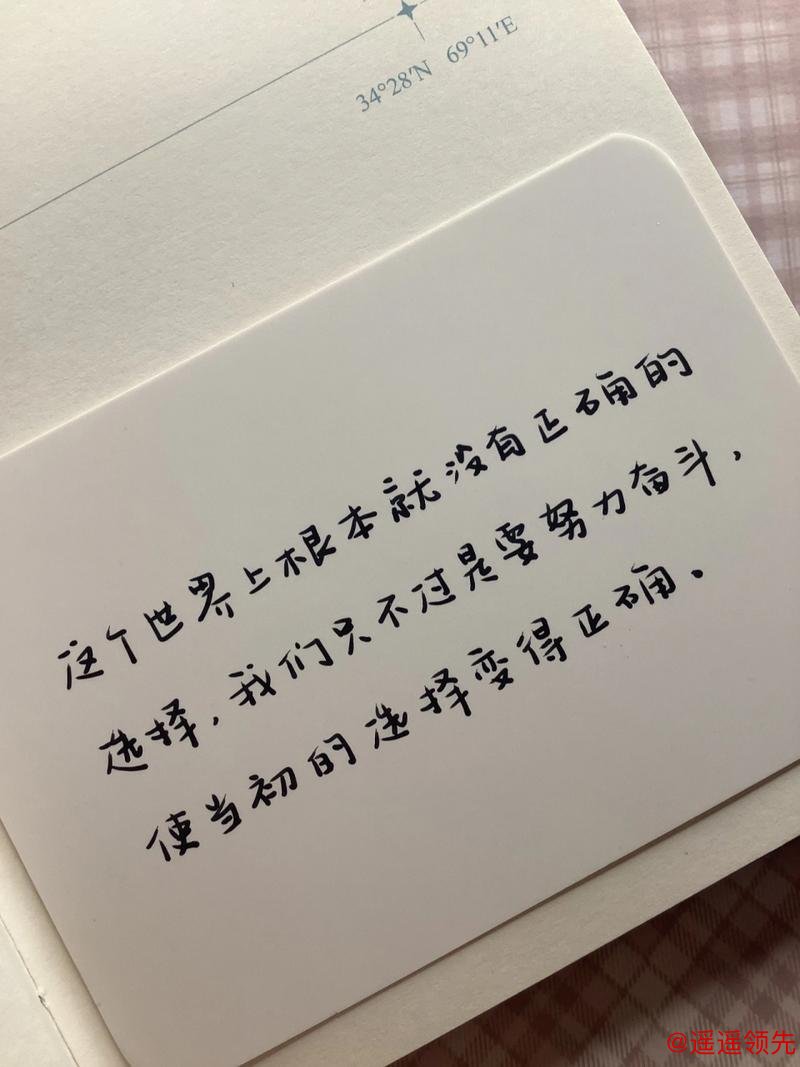 34°28′N 69°11′E
这个世界上根本就没有正确的
选择，我们只不过是要努力奋斗，
使当初的选择变得正确。
@遥遥领先